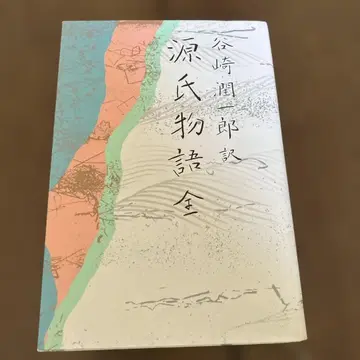 谷崎潤一郎 訳
源氏物語 全